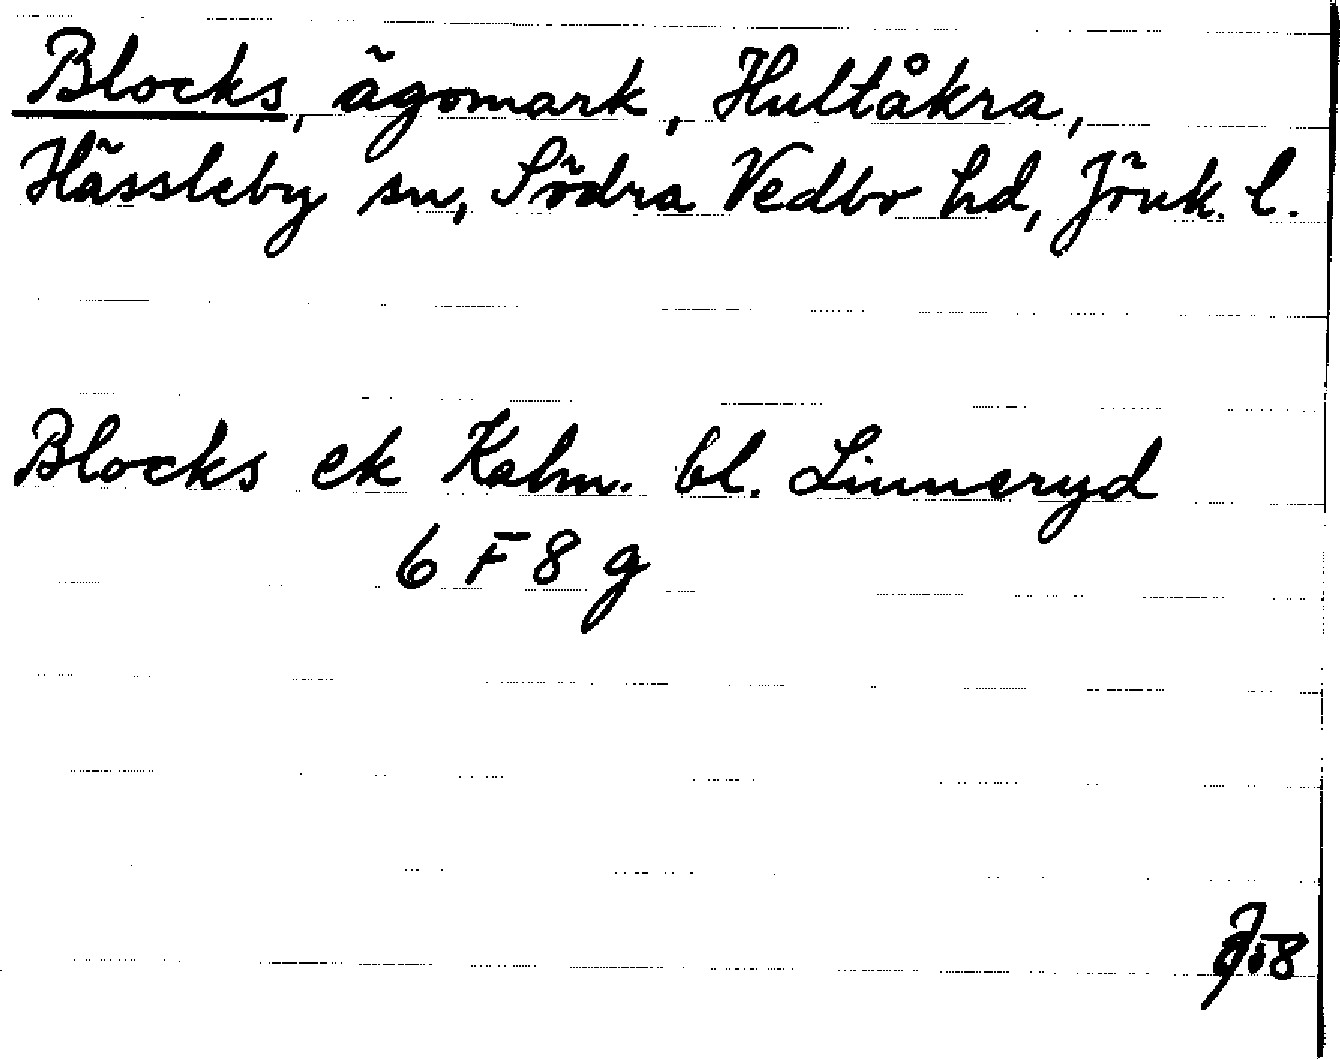 Blocks, ägomark, Hultåkra,
Hässleby sn, Södra Vedbo hd, Jönk. l.
Blocks ek Kalm. bl. Linneryd
6 F 8 g